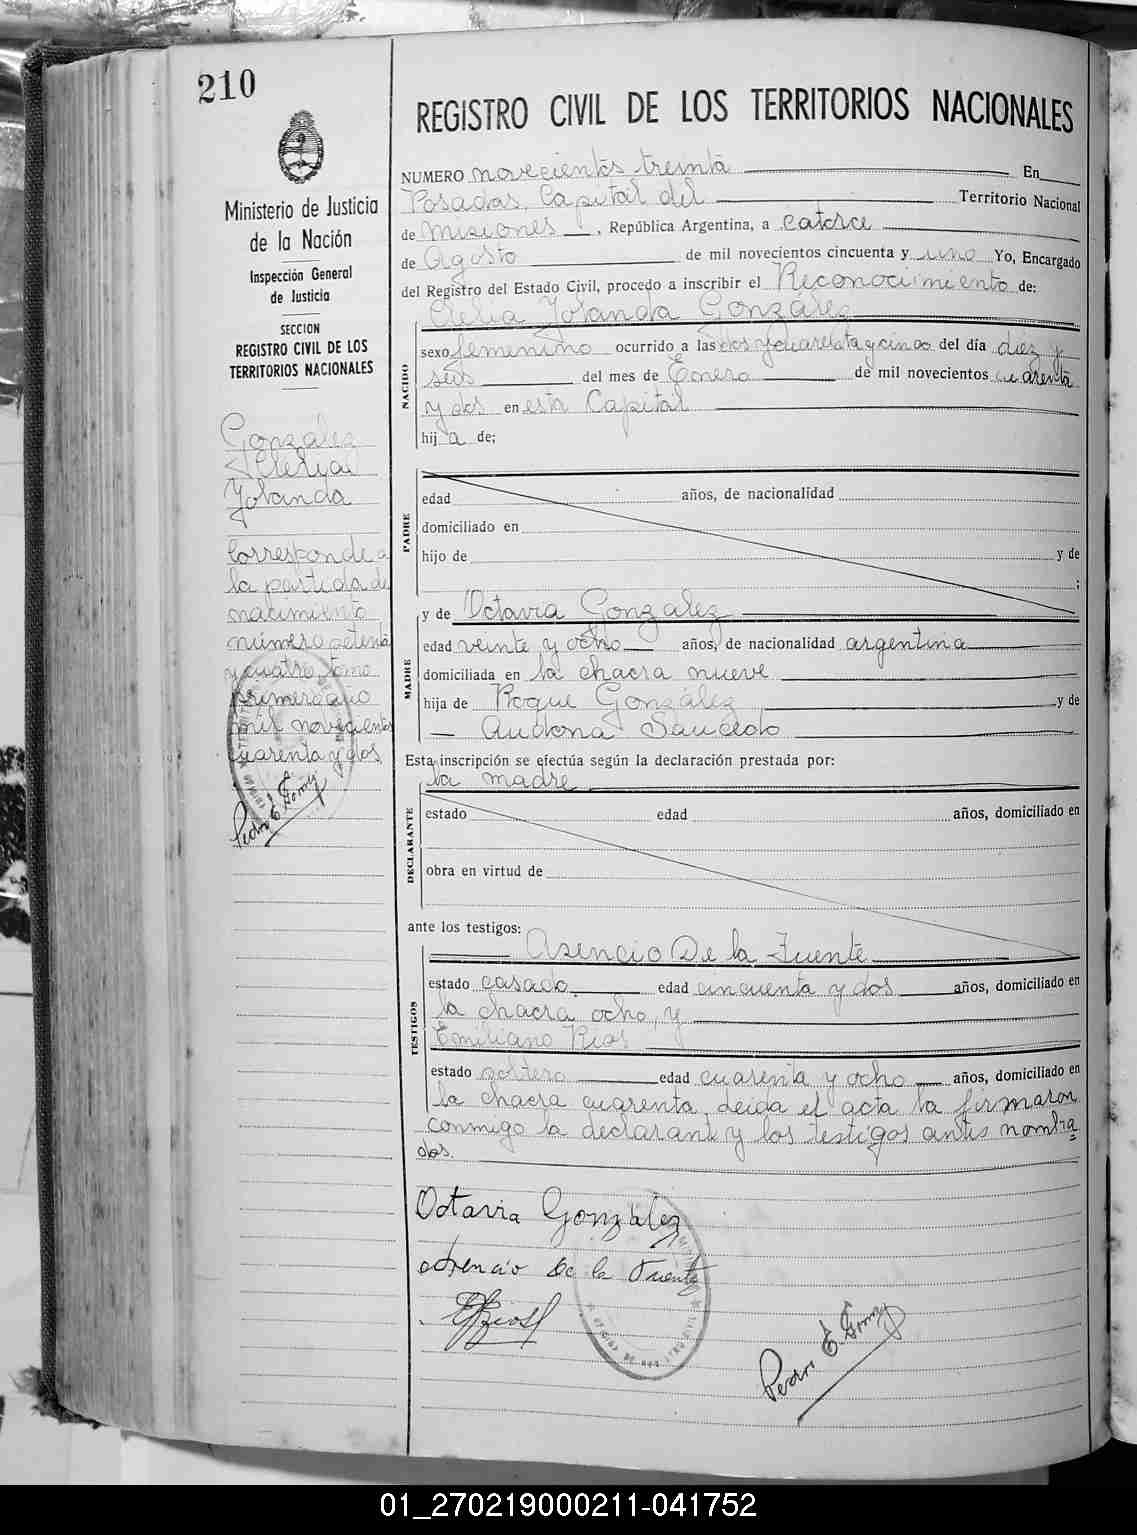 210
Ministerio de Justicia
de la Nación
Inspección General
de Justicia
SECCION
REGISTRO CIVIL DE LOS
TERRITORIOS NACIONALES
González
Yolanda
Corresponde a
la partida de
nacimiento
número setenta
y cuatro, tomo
primero año
mil novecientos
cuarenta y dos
Pedro E. Gomy
REGISTRO CIVIL DE LOS TERRITORIOS NACIONALES
NUMERO novecientos treinta En
Posadas, Capital del Territorio Nacional
de Misiones, República Argentina, a catorce
de Agosto de mil novecientos cincuenta y uno Yo, Encargado
del Registro del Estado Civil, procedo a inscribir el Reconocimiento de:
Yolanda González
NACIDO
sexo femenino ocurrido a las dos y cuarenta y cinco del día diez y
seis del mes de Enero de mil novecientos cuarenta
y dos en esta Capital
hij a de;
PADRE
edad años, de nacionalidad
domiciliado en
hijo de y de
;
MADRE
y de Octavia González
edad veinte y ocho años, de nacionalidad argentina
domiciliada en la chacra nueve
hija de Roque González y de
Saucedo
Esta inscripción se efectúa según la declaración prestada por:
la madre
DECLARANTE
estado edad años, domiciliado en
obra en virtud de
ante los testigos:
Asencio De la Fuente
TESTIGOS
estado casado. edad cincuenta y dos años, domiciliado en
la chacra ocho, y
Emiliano Rios
estado soltero edad cuarenta y ocho años, domiciliado en
la chacra cuarenta, leida el acta la firmaron
conmigo la declarante y los testigos antes nombra
dos.
Octavia González
Asencio De la Fuente
Pedro E. Gomy
01_270219000211-041752